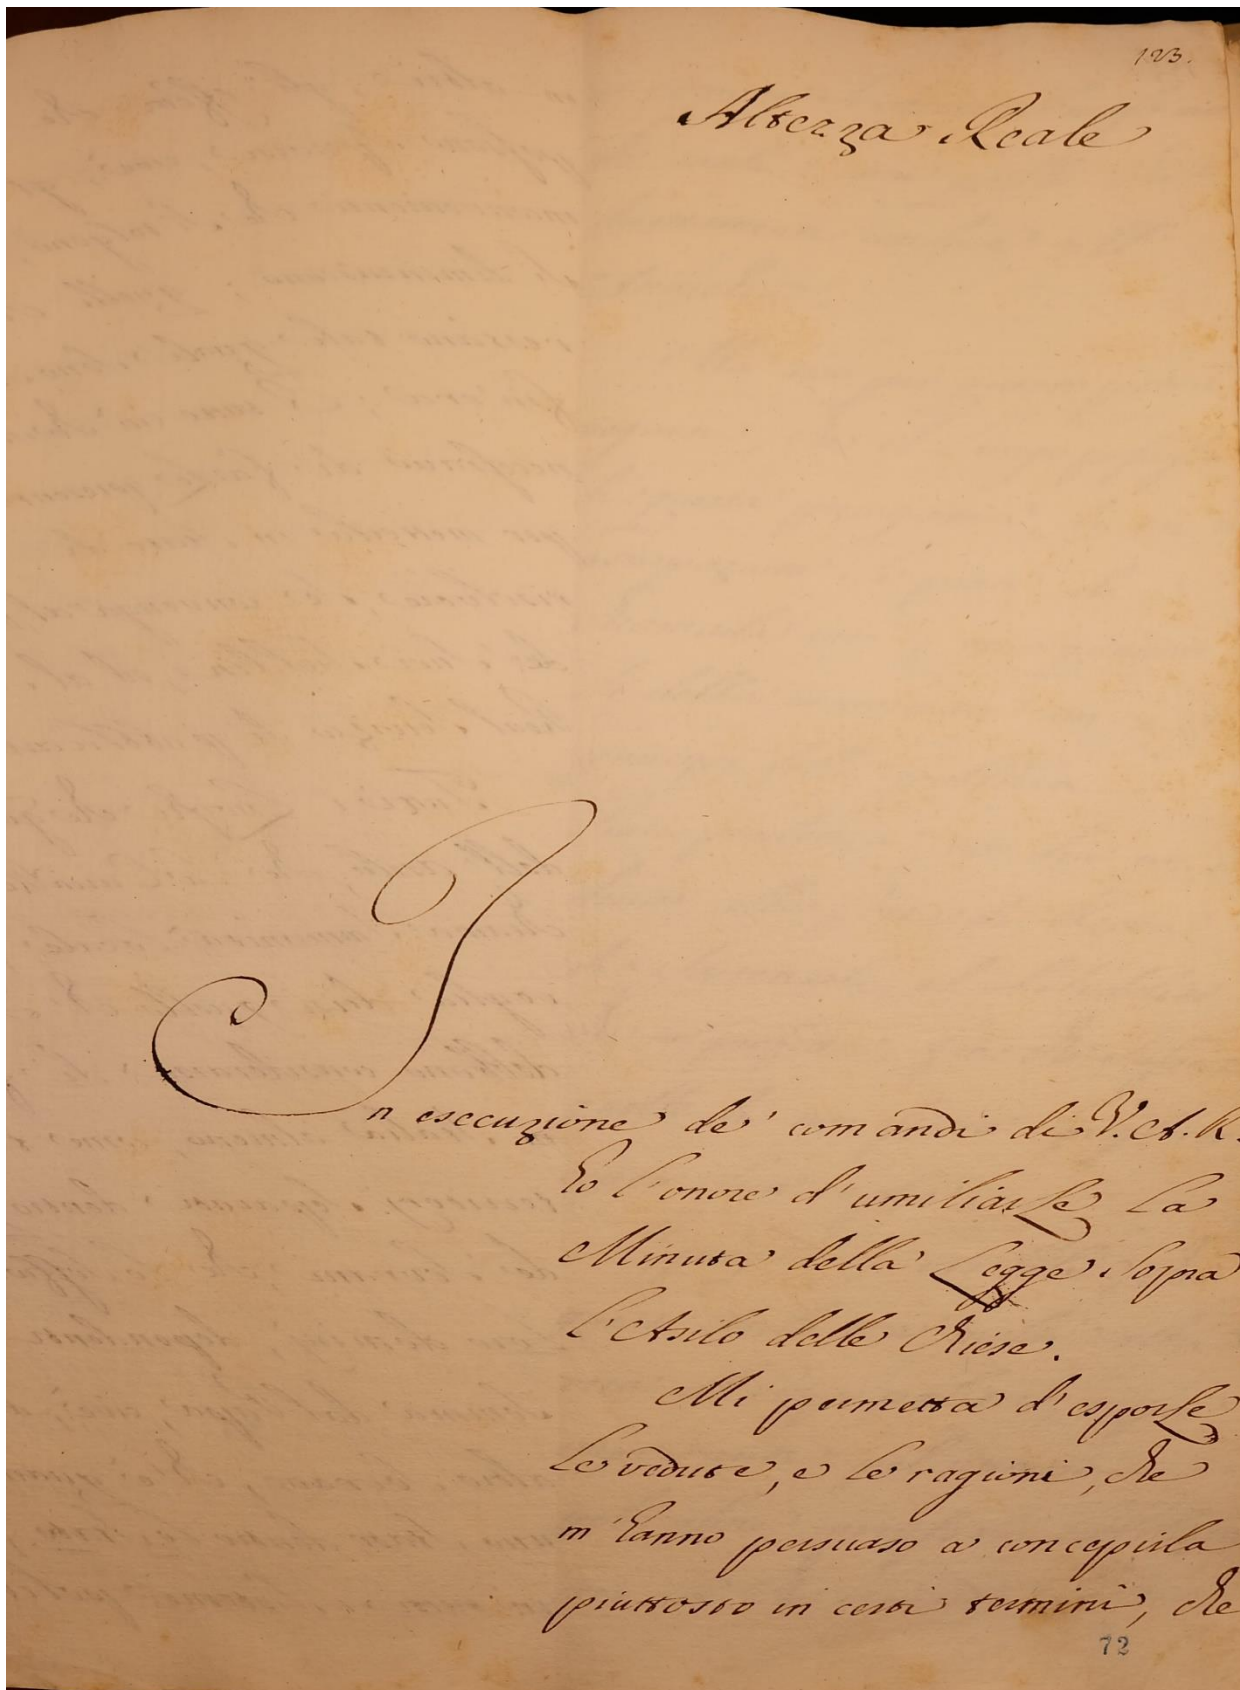 123.
Altezza Reale
In esecuzione de' comandi di V. A. R.
ho l'onore d'umiliarle la
Minuta della Legge sopra
l'Asilo delle Chiese.
Mi permetta d'esporle
le vedute, e le ragioni, che
m'hanno persuaso a concepirla
piuttosto in certi termini, che
72